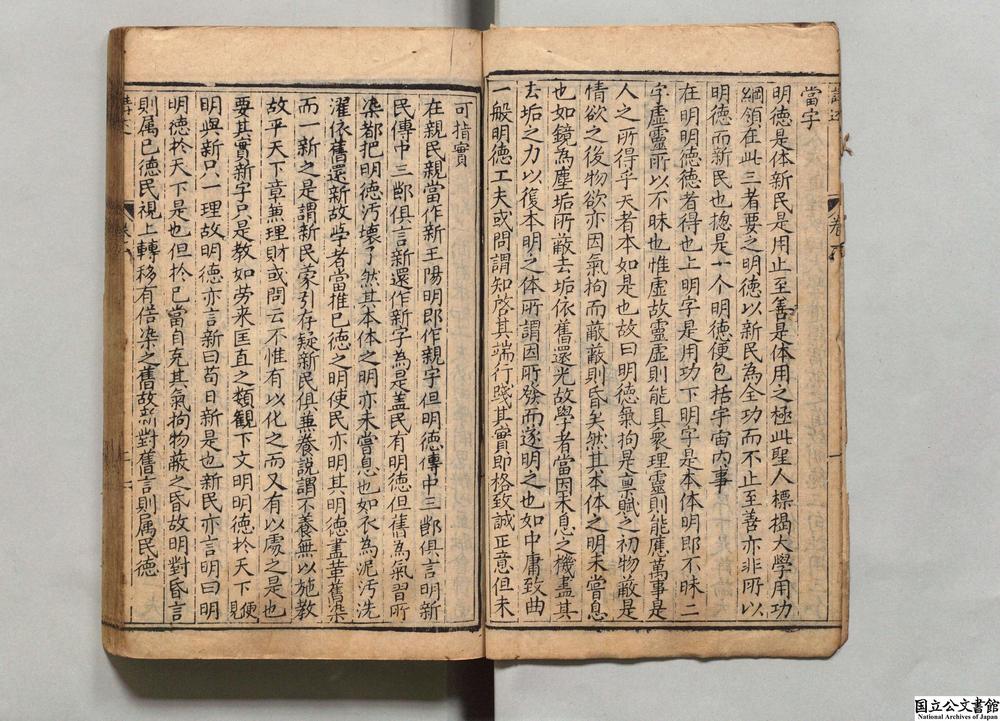 當字
明德是体新民是用止至善是体用之極此聖人標揭大學用功
綱領在此三者要之明德以新民為全功而不止至善亦非所以
明德而新民也總是一个明德便包括宇宙內事
在明明德德者得也上明字是用功下明字是本体明即不昧二
字虛靈所以不昧也惟虛故靈虛則能具衆理靈則能應萬事是
人之所得乎天者本如是也故曰明德氣拘是禀賦之初物蔽是
情欲之後物欲亦因氣拘而蔽蔽則昏矣然其本体之明未嘗息
也如鏡為塵垢所蔽去垢依舊還光故學者當因未息之機盡其
去垢之力以復本明之体所謂因所發而遂明之也如中庸致曲
一般明德工夫或問謂知啓其端行踐其實即格致誠正意但未
可指實
在親民親當作新王陽明即作親字但明德傳中三節俱言明新
民傳中三節俱言新還作新字為是盖民有明德但舊為氣習所
染都把明德汚壞了然其本体之明亦未嘗息也如衣為泥汚洗
濯依舊還新故學者當推已德之明使民亦明其明德盡革舊染
而一新之是謂新民蒙引存疑新民俱兼養說謂不養無以施教
故平天下章兼理財或問云不惟有以化之而又有以處之是也
要其實新字只是教如劳来匡直之類觀下文明明德於天下便見
明與新只一理故明德亦言新曰苟日新是也新民亦言明曰明
明德於天下是也但於已當自克其氣拘物蔽之昏故明對昏言
則属已德民視上轉移有俗染之舊故新對舊言則属民德
國立公文書館
National Archives of Japan